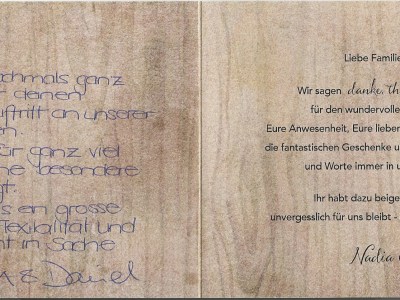 nochmals ganz
deinen
Auftritt an unserer
en.
für ganz viel
ne besondere
gt.
s en grosse
Flexibilität und
nt in Sache
A & Daniel
Liebe Familie
Wir sagen danke, th
für den wundervolle
Eure Anwesenheit, Eure lieben
die fantastischen Geschenke u
und Worte immer in u
Ihr habt dazu beige
unvergesslich für uns bleibt -
Nadia